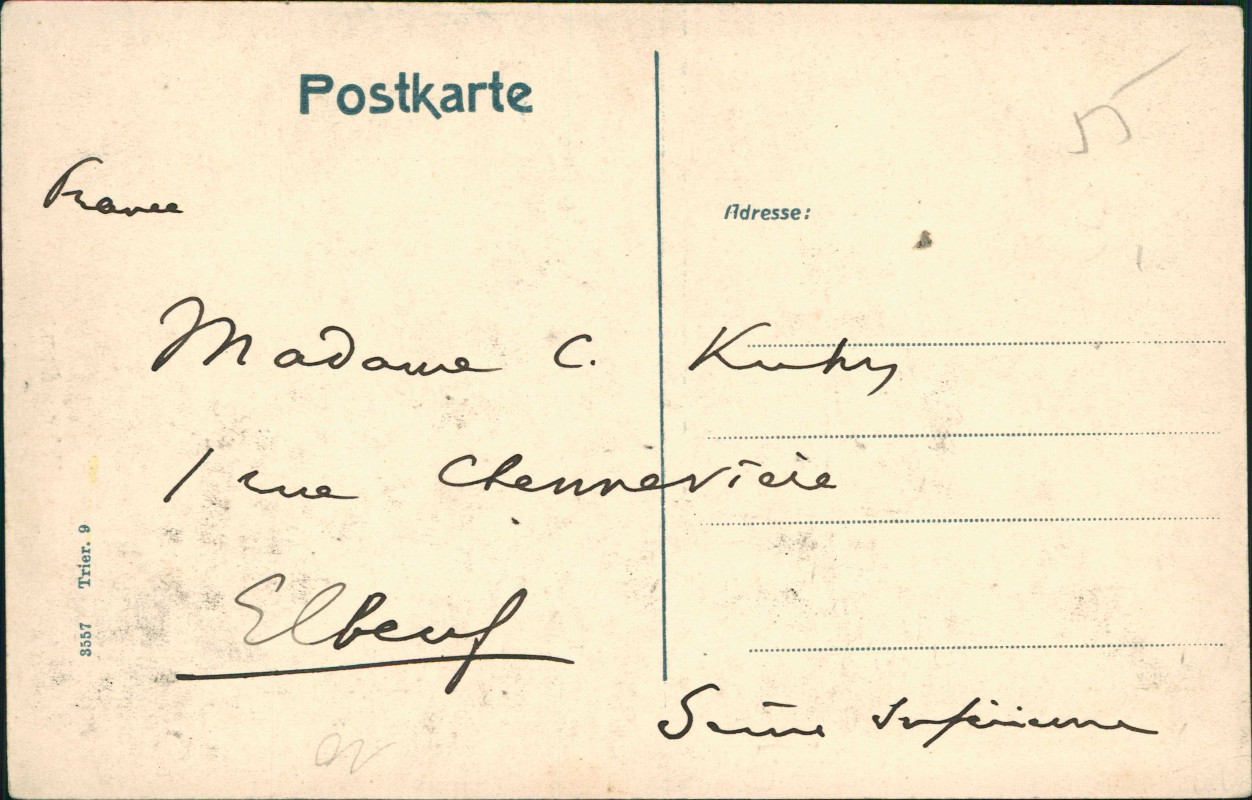 Postkarte
France
5
Adresse:
Madame C. Kuhn
1 rue Chennevière
Elbeuf
Seine Inférieure
3557 Trier. 9